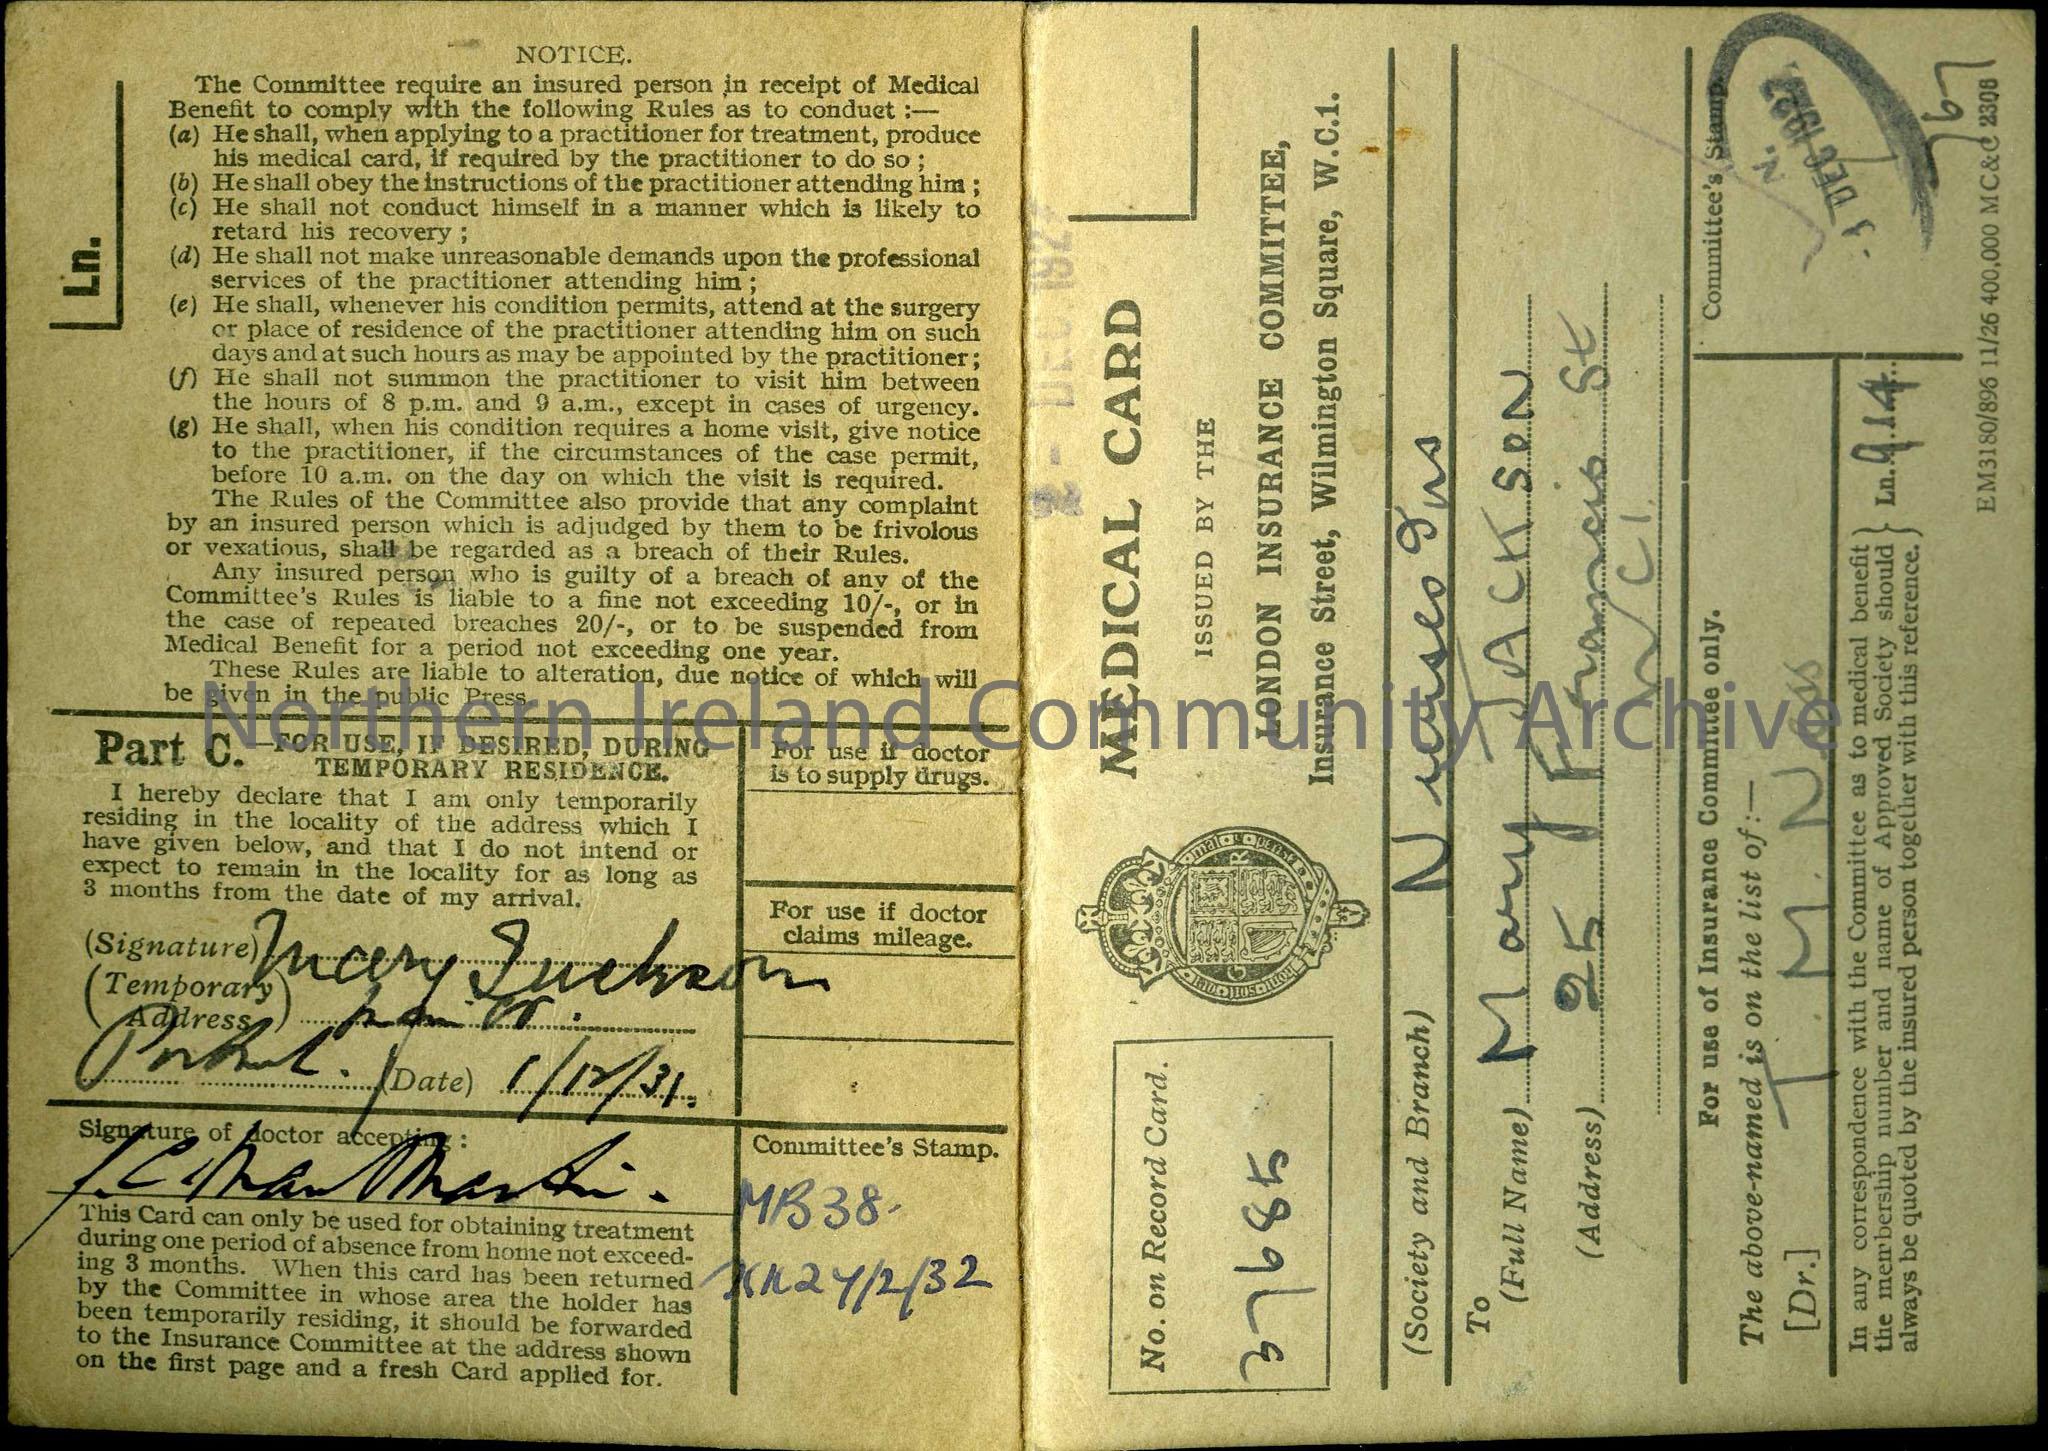 Ln.
NOTICE.
The Committee require an insured person in receipt of Medical
Benefit to comply with the following Rules as to conduct :—
(a) He shall, when applying to a practitioner for treatment, produce
his medical card, if required by the practitioner to do so ;
(b) He shall obey the instructions of the practitioner attending him ;
(c) He shall not conduct himself in a manner which is likely to
retard his recovery ;
(d) He shall not make unreasonable demands upon the professional
services of the practitioner attending him ;
(e) He shall, whenever his condition permits, attend at the surgery
or place of residence of the practitioner attending him on such
days and at such hours as may be appointed by the practitioner ;
(f) He shall not summon the practitioner to visit him between
the hours of 8 p.m. and 9 a.m., except in cases of urgency.
(g) He shall, when his condition requires a home visit, give notice
to the practitioner, if the circumstances of the case permit,
before 10 a.m. on the day on which the visit is required.
The Rules of the Committee also provide that any complaint
by an insured person which is adjudged by them to be frivolous
or vexatious, shall be regarded as a breach of their Rules.
Any insured person who is guilty of a breach of any of the
Committee's Rules is liable to a fine not exceeding 10/-, or in
the case of repeated breaches 20/-, or to be suspended from
Medical Benefit for a period not exceeding one year.
These Rules are liable to alteration, due notice of which will
be given in the public Press.
Part C.—FOR USE, IF DESIRED, DURING
TEMPORARY RESIDENCE.
I hereby declare that I am only temporarily
residing in the locality of the address which I
have given below, and that I do not intend or
expect to remain in the locality for as long as
3 months from the date of my arrival.
(Signature) Mary Jackson
(Temporary
Address)
(Date) 1/12/31.
For use if doctor
is to supply drugs.
For use if doctor
claims mileage.
Signature of doctor accepting :
J. C. Martin.
This Card can only be used for obtaining treatment
during one period of absence from home not exceed-
ing 3 months. When this card has been returned
by the Committee in whose area the holder has
been temporarily residing, it should be forwarded
to the Insurance Committee at the address shown
on the first page and a fresh Card applied for.
Committee's Stamp.
MB38.
24/2/32
MEDICAL CARD
ISSUED BY THE
LONDON INSURANCE COMMITTEE,
Insurance Street, Wilmington Square, W.C.1.
No. on Record Card.
37685
(Society and Branch) Nurses Ins
To
(Full Name) Mary JACKSON
(Address) 25 Francis St
WC1.
For use of Insurance Committee only.
The above-named is on the list of :—
[Dr.] T. M. Ness
Committee's Stamp.
DEC 1927
767
In any correspondence with the Committee as to medical benefit
the membership number and name of Approved Society should
always be quoted by the insured person together with this reference.
Ln. 9.14
EM3180/896 11/26 400,000 MC&C 2308
Northern Ireland Community Archive